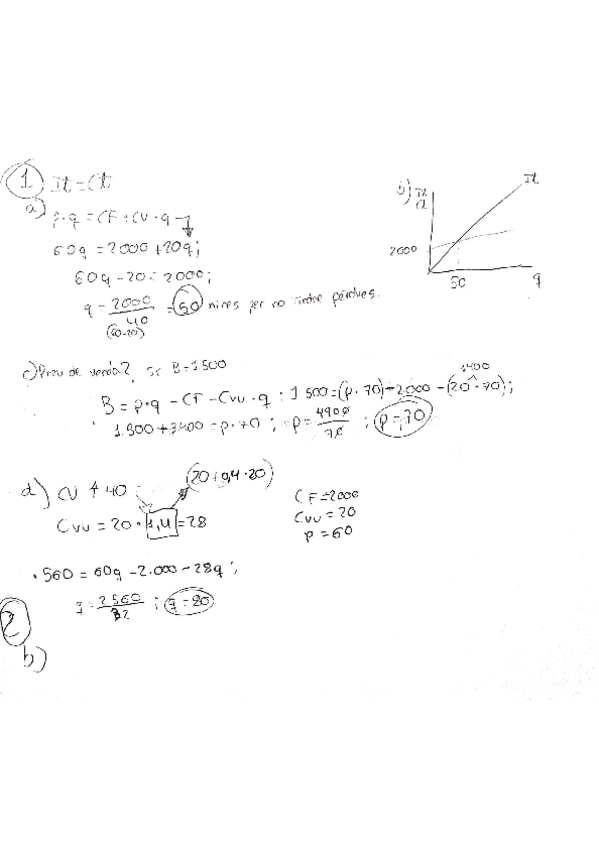 1 It = Ct
a) p·q = CF + CV·q
60q = 2000 + 20q;
60q - 20 = 2000;
q = 2000/40 = 50 nines per no tindre pèrdues.
(60-20)
b) It
Ct
It
2000
50
q
c) Preu de venda? si B = 1500
1400
B = p·q - CF - Cvu·q ; 1500 = (p·70) - 2000 - (20·70);
1.500 + 3400 = p·70 ; p = 4900/70 ; p = 70
d) CV ↑ 40 : (20 + 0,4·20)
Cvu = 20 · 1,4 = 28
CF = 2000
Cvu = 20
p = 60
· 560 = 60q - 2.000 - 28q ;
q = 2560/32 ; q = 80
2
b)